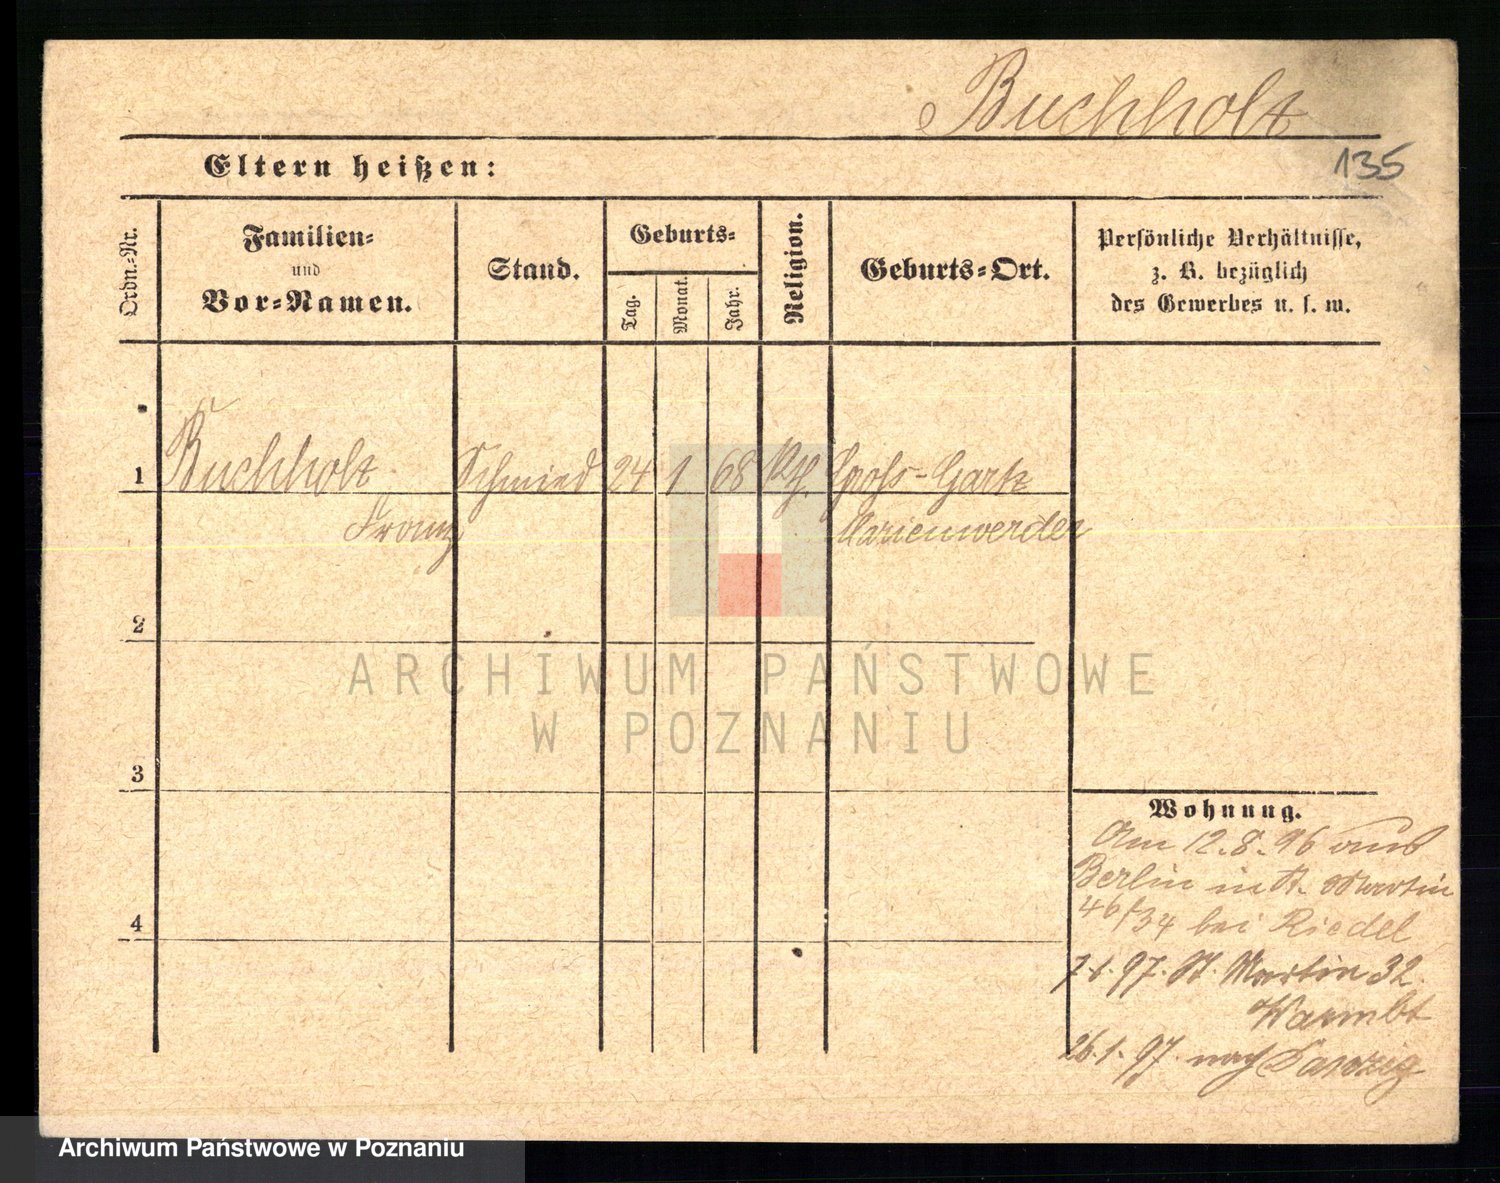 Buchholz
135
Eltern heißen:
Ordn.-Nr.
Familien-
und
Vor-Namen.
Stand.
Geburts-
Tag.
Monat.
Jahr.
Religion.
Geburts-Ort.
Persönliche Verhältnisse,
z. B. bezüglich
des Gewerbes u. s. w.
1 Buchholz Schmied 24 1 68 Kth. Gross-Gartz
Franz Marienwerder
2
ARCHIWUM PAŃSTWOWE
W POZNANIU
3
Wohnung.
Am 12.8.96 aus
Berlin in St. Martin
46/34 bei Riedel
7.1.97. St. Martin 32.
Warmbt
4
26.1.97 nach Danzig
Archiwum Państwowe w Poznaniu